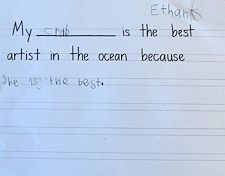 Ethan K
My crab is the best
artist in the ocean because
She is the best.